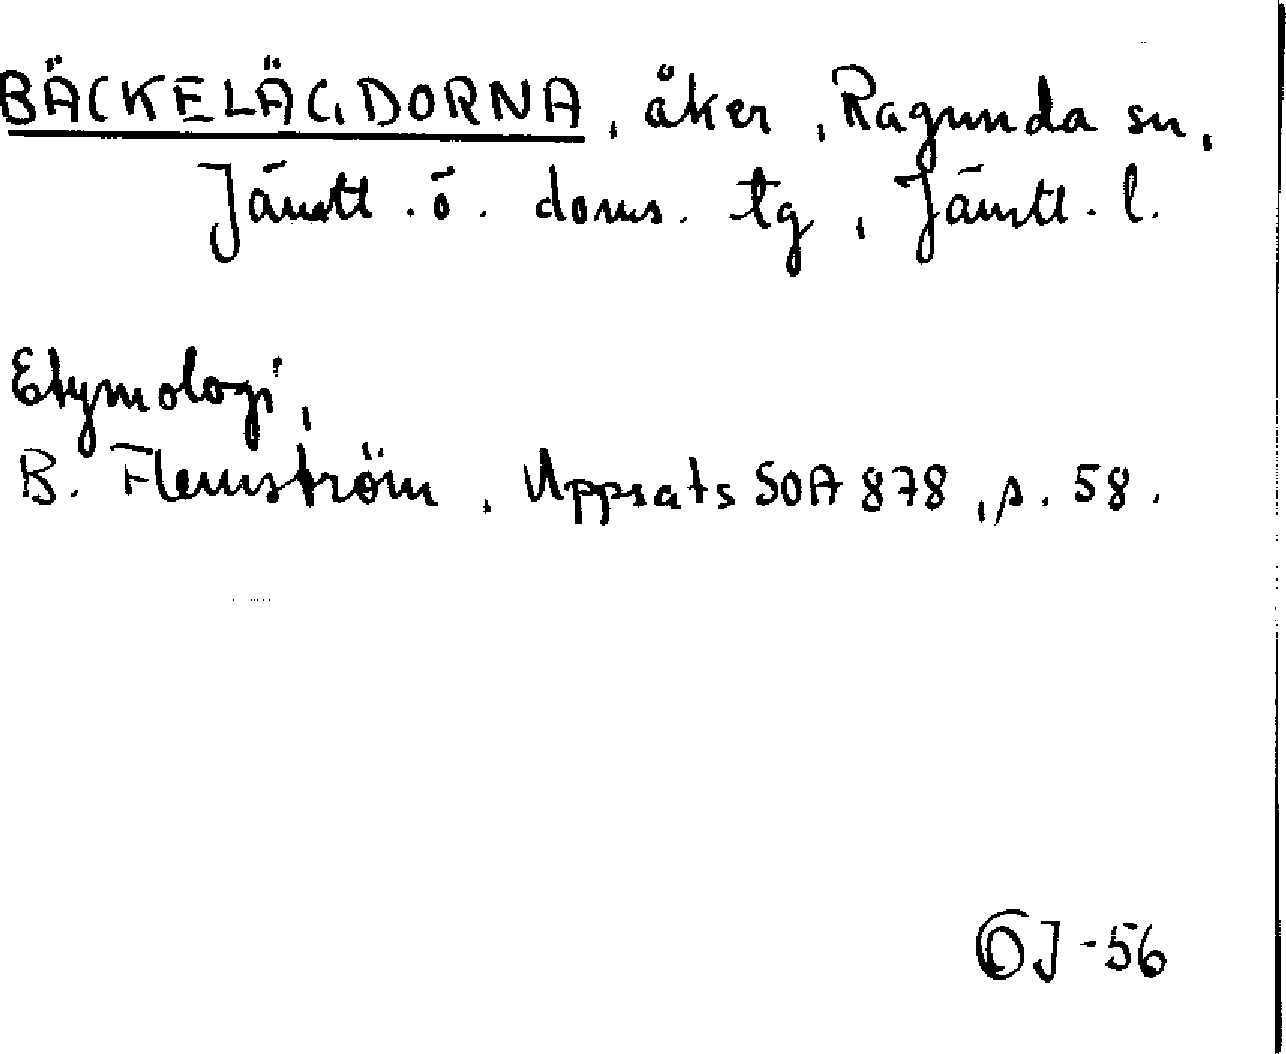 BÄCKELÄGDORNA, åker, Ragunda sn,
Jämtl. ö. doms. tg, Jämtl. l.
Etymologi,
B. Flemström, Uppsats SOA 878, s. 58.
OJ-56